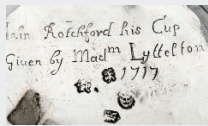 Iohn Rotchford his Cup
Given by Madm Lyttelton
1717